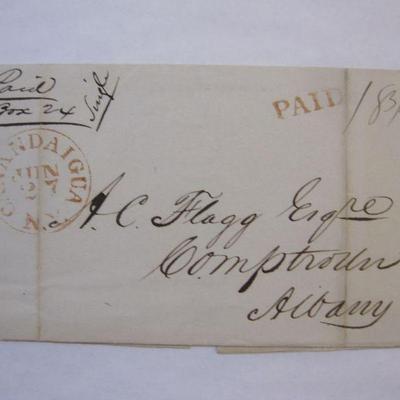 Paid
Box 24
Single
PAID
CANANDAIGUA N.Y.
JUN
24
A. C. Flagg Esqre
Comptroller
Albany